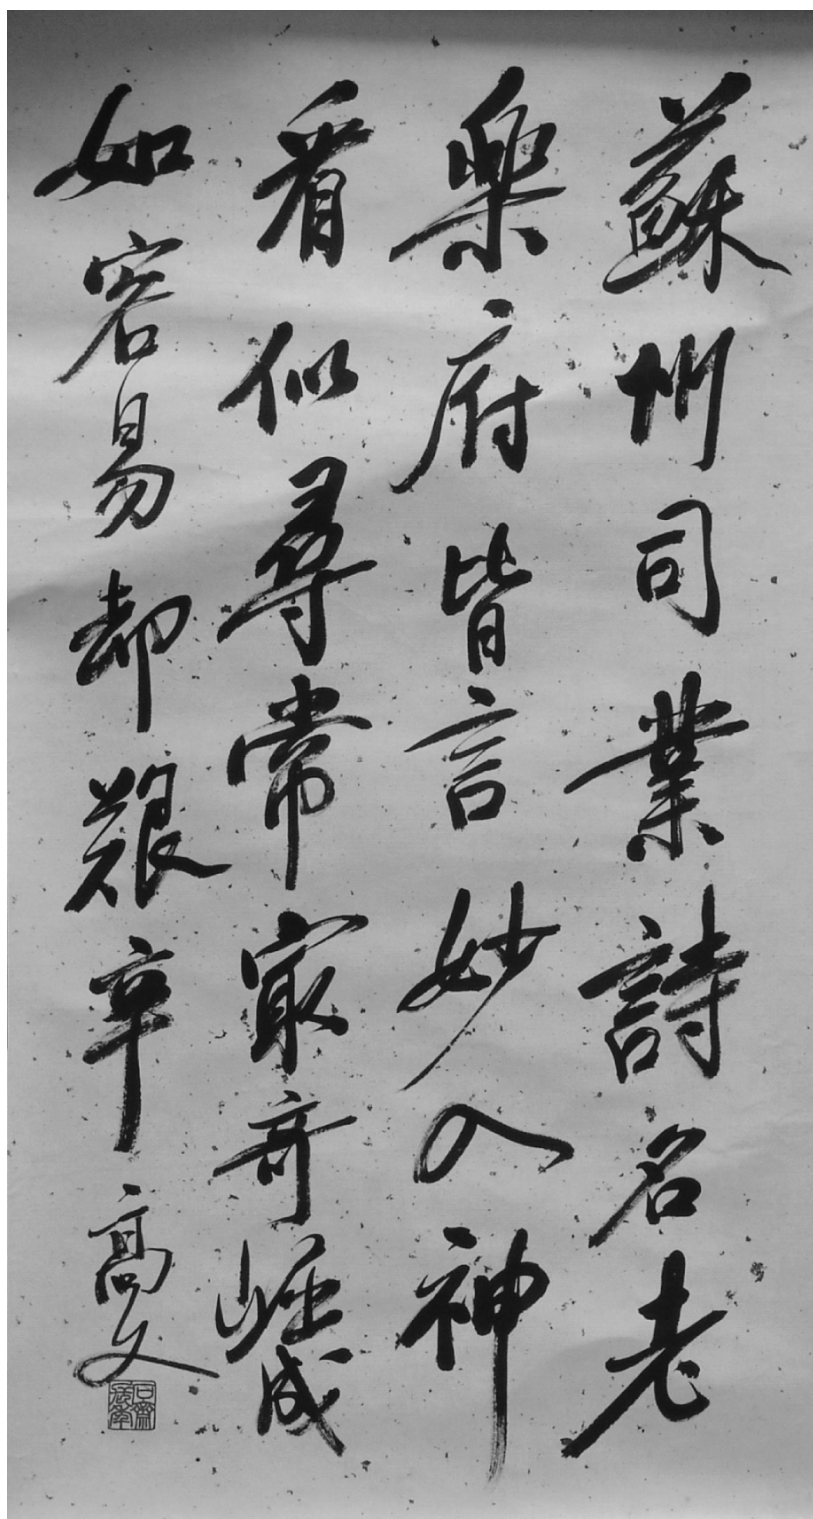 蘇州司業詩名老
樂府皆言妙入神
看似尋常最奇崛成
如容易却艱辛 高文